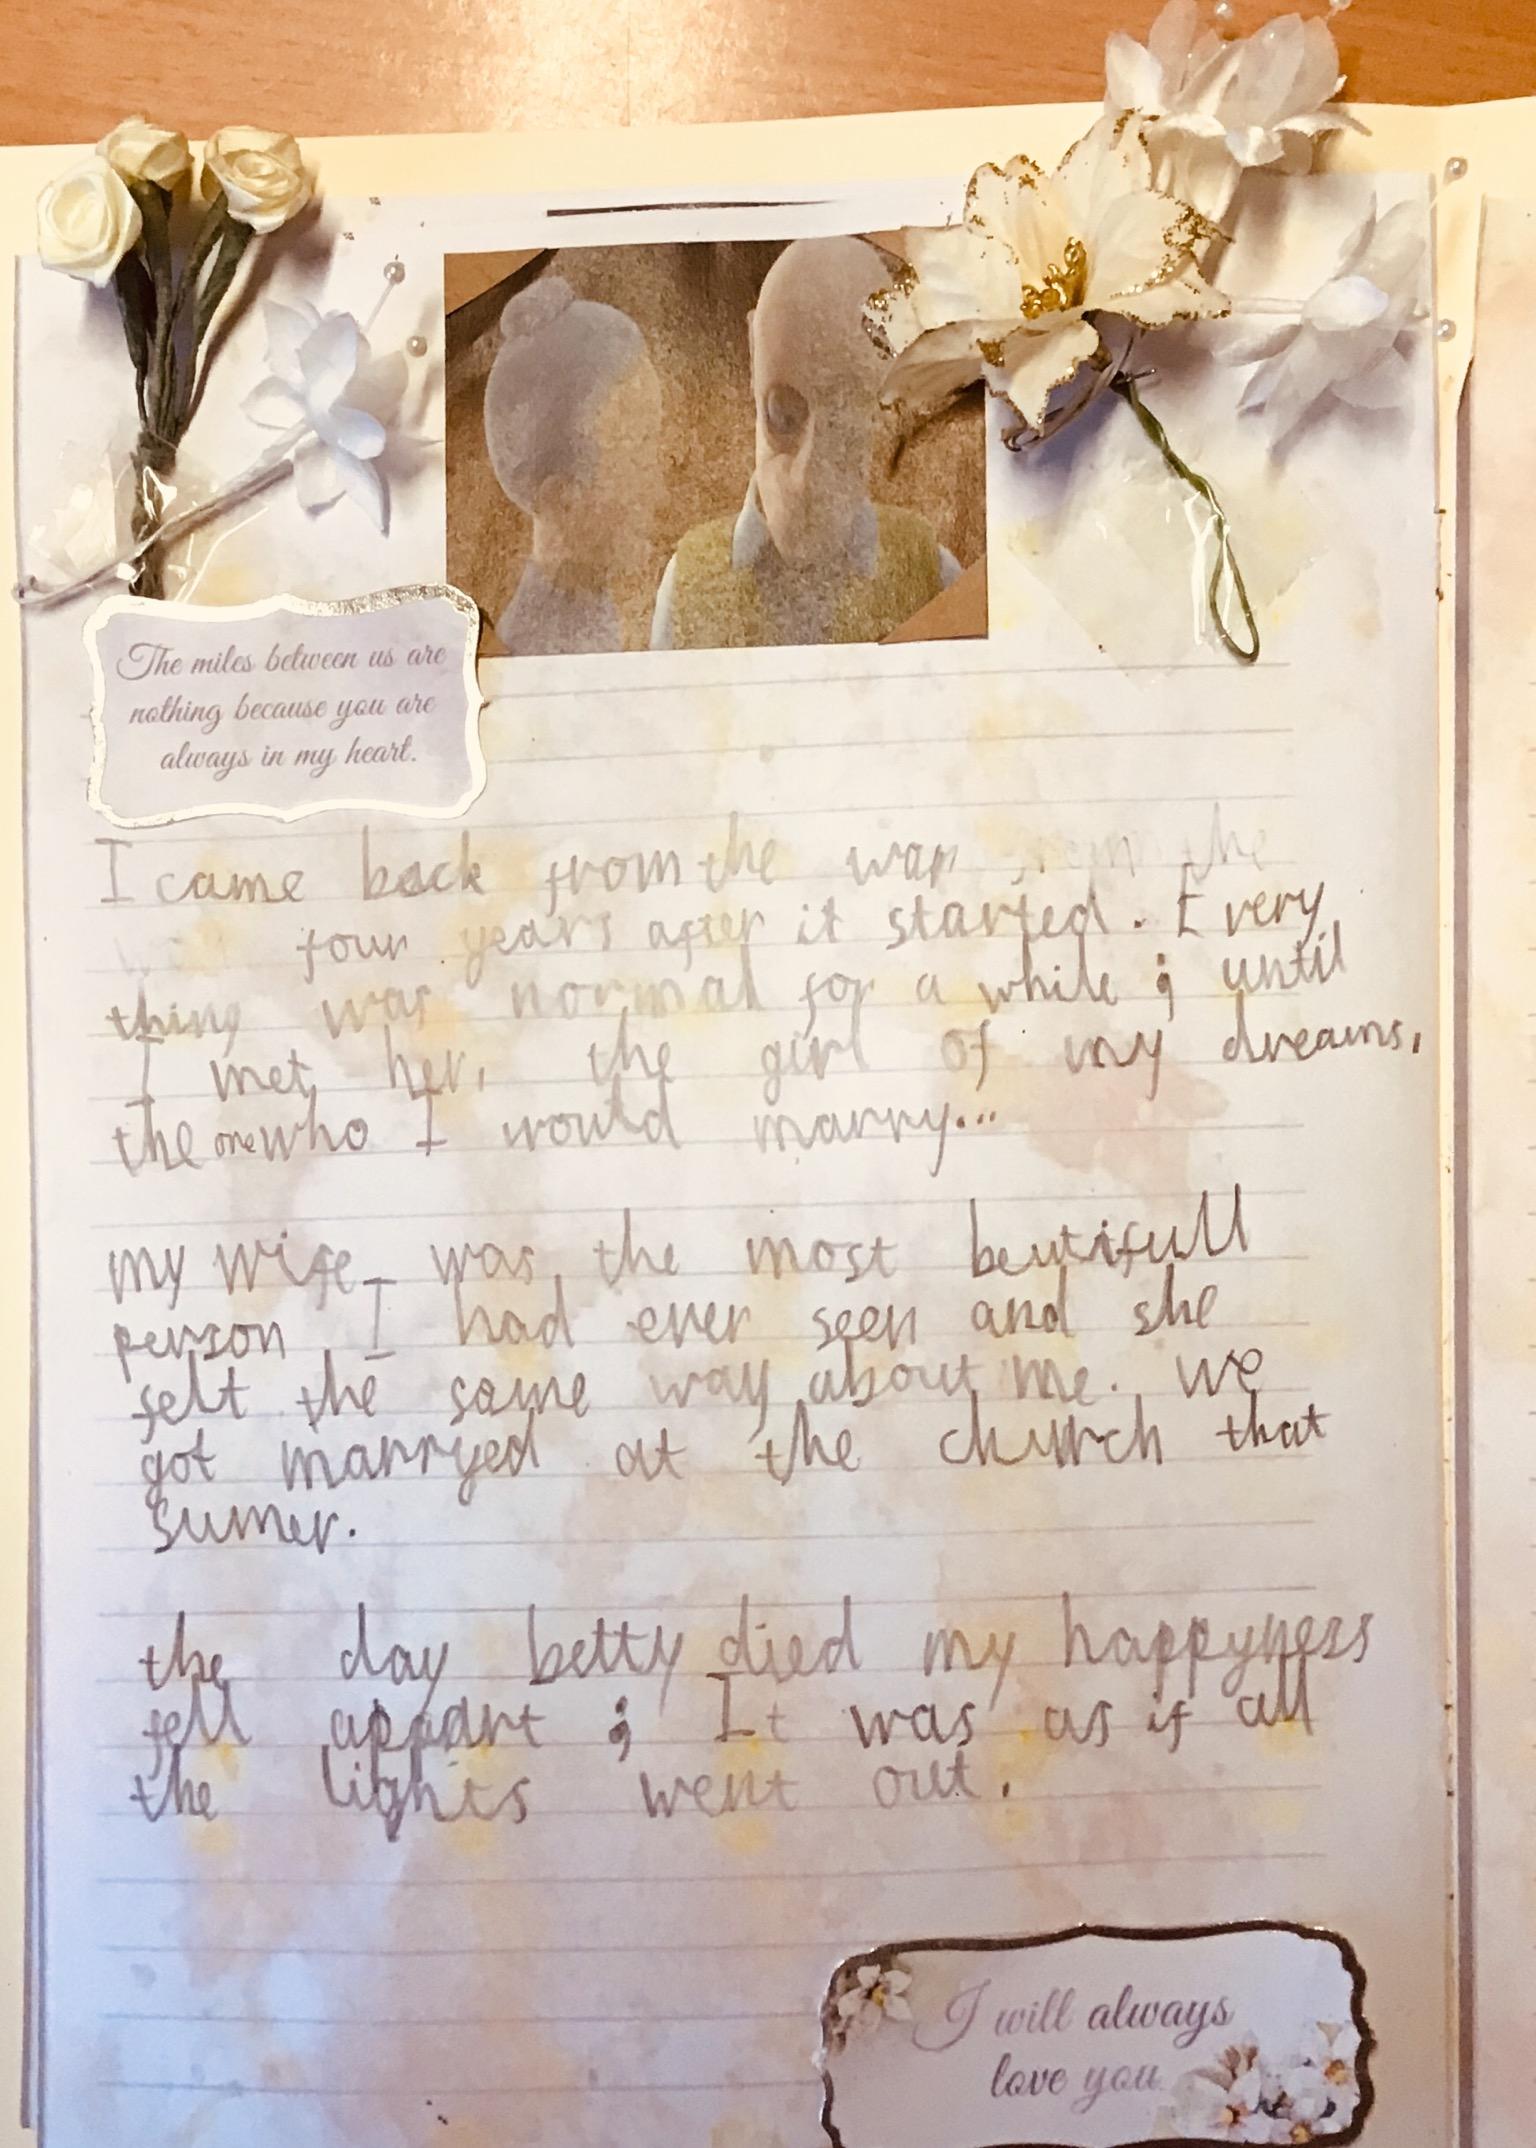 The miles between us are
nothing because you are
always in my heart.
I came back from the war from the
four years after it started. Every
thing was normal for a while ; until
I met her, the girl of my dreams,
the one who I would marry...
my wife was the most beutifull
person I had ever seen and she
felt the same way about me. we
got marryed at the church that
sumer.
the day betty died my happyness
fell appart ; It was as if all
the lights went out.
I will always
love you